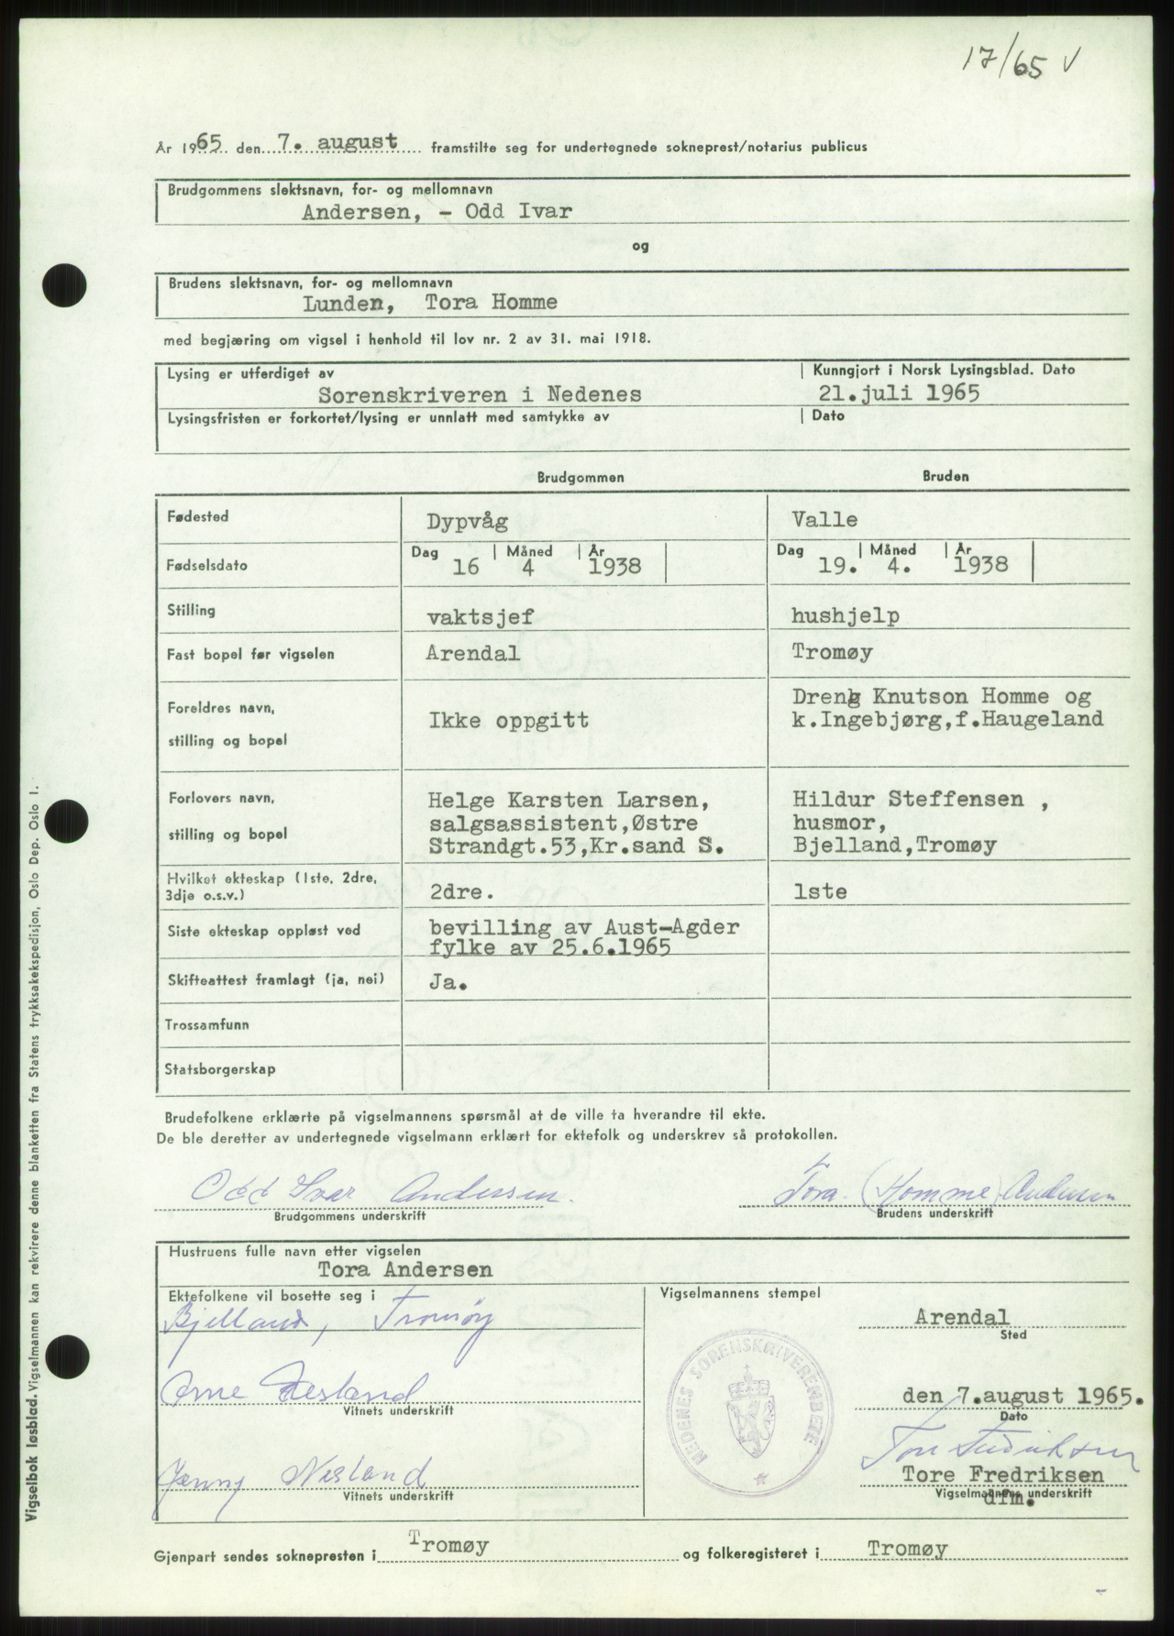 17/65 V
År 1965 den 7. august framstilte seg for undertegnede sokneprest/notarius publicus
Brudgommens slektsnavn, for- og mellomnavn
Andersen, - Odd Ivar
og
Brudens slektsnavn, for- og mellomnavn
Lunden, Tora Homme
med begjæring om vigsel i henhold til lov nr. 2 av 31. mai 1918.
Lysing er utferdiget av | Kunngjort i Norsk Lysingsblad. Dato
Sorenskriveren i Nedenes 21.juli 1965
Lysingsfristen er forkortet/lysing er unnlatt med samtykke av | Dato
Brudgommen Bruden
Fødested Dypvåg Valle
Dag | Måned | År Dag | Måned | År
Fødselsdato 16 4 1938 19. 4. 1938
Stilling vaktsjef hushjelp
Fast bopel før vigselen Arendal Tromøy
Foreldres navn, Dreng Knutson Homme og
stilling og bopel Ikke oppgitt k.Ingebjørg,f.Haugeland
Forlovers navn, Helge Karsten Larsen, Hildur Steffensen ,
stilling og bopel salgsassistent,Østre husmor,
Strandgt.53,Kr.sand S. Bjelland,Tromøy
Hvilket ekteskap (1ste, 2dre,
3dje o.s.v.) 2dre. 1ste
Siste ekteskap oppløst ved bevilling av Aust-Agder
fylke av 25.6.1965
Skifteattest framlagt (ja, nei) Ja.
Trossamfunn
Statsborgerskap
Brudefolkene erklærte på vigselmannens spørsmål at de ville ta hverandre til ekte.
De ble deretter av undertegnede vigselmann erklært for ektefolk og underskrev så protokollen.
Odd Ivar Andersen. Tora (Homme) Andersen
Brudgommens underskrift Brudens underskrift
Hustruens fulle navn etter vigselen
Tora Andersen
Ektefolkene vil bosette seg i Vigselmannens stempel
Bjelland, Tromøy Arendal
Sted
NEDENES SORENSKRIVEREMBETE
Arne Nesland den 7.august 1965.
Vitnets underskrift Dato
Tore Fredriksen
Jenny Nesland Tore Fredriksen
Vitnets underskrift Vigselmannens underskrift
dfm.
Gjenpart sendes soknepresten i Tromøy og folkeregisteret i Tromøy
Vigselbok løsblad. Vigselmannen kan rekvirere denne blanketten fra Statens trykksakekspedisjon, Oslo Dep. Oslo 1.